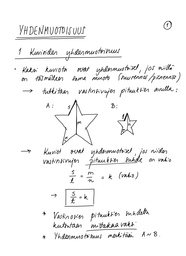 YHDENMUOTOISUUS
1
1 Kuvioiden yhdenmuotoisuus
• Kaksi kuviota ovat yhdenmuotoiset, jos niillä
on täsmälleen sama muoto (suurennos/pienennös)
→ tutkitaan vastinsivujen pituuksien avulla:
A: B:
s
m n
→ Kuviot ovat yhdenmuotoiset, jos niiden
vastinsivujen pituuksien suhde on vakio
= m/n = k (vakio)
→ = k
* Vastinosien pituuksien suhdetta
kutsutaan mittakaavaksi
* Yhdenmuotoisuus merkitään A ~ B.